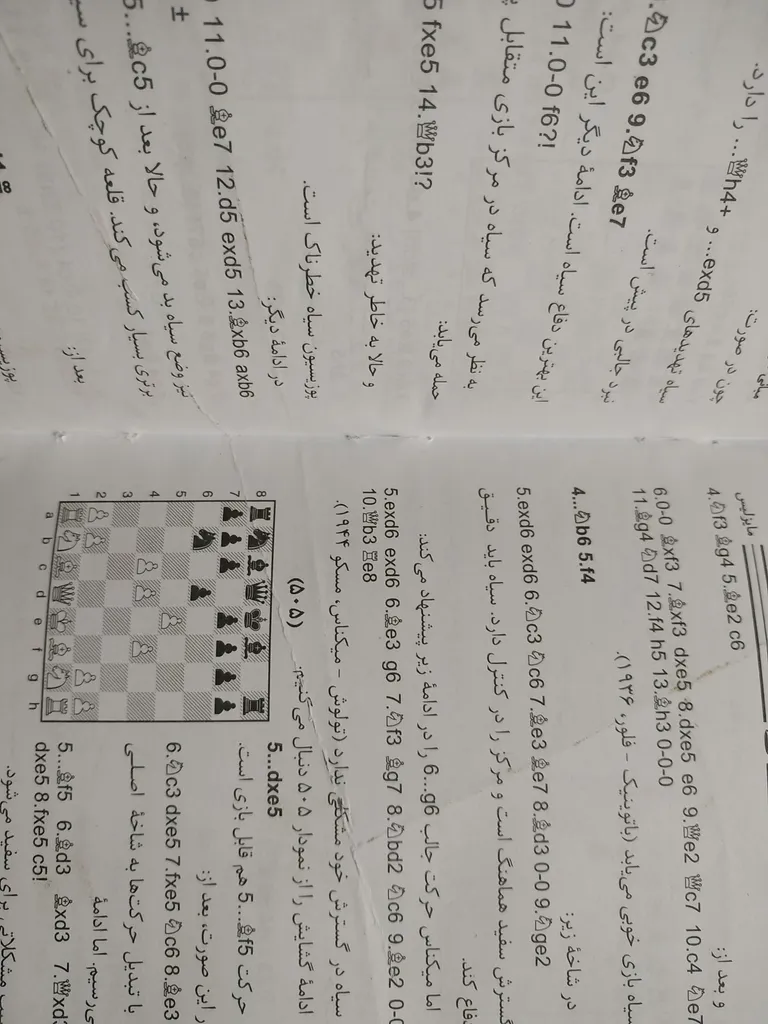 مایزلیس
4.♘f3 ♗g4 5.♗e2 c6
و بعد از:
6.0-0 ♗xf3 7.♗xf3 dxe5 8.dxe5 e6 9.♕e2 ♕c7 10.c4 ♘e7
11.♗g4 ♘d7 12.f4 h5 13.♗h3 0-0-0
سیاه بازی خوبی می‌یابد (باتوینیک - فلور، ۱۹۳۶).
4...♘b6 5.f4
در شاخهٔ زیر:
5.exd6 exd6 6.♘c3 ♘c6 7.♗e3 ♗e7 8.♗d3 0-0 9.♘ge2
گسترش سفید هماهنگ است و مرکز را در کنترل دارد. سیاه باید دقیق
دفاع کند.
اما میکناس حرکت جالب 6...g6 را در ادامهٔ زیر پیشنهاد می‌کند:
5.exd6 exd6 6.♗e3 g6 7.♘f3 ♗g7 8.♘bd2 ♘c6 9.♗e2 0-0
10.♕b3 ♖e8
سیاه در گسترش خود مشکلی ندارد (تولوش - میکناس، مسکو ۱۹۴۴).
ادامهٔ گشایش را از نمودار ۵۰۵ دنبال می‌کنیم:
(۵۰۵)
8
7
6
5
4
3
2
1
a b c d e f g h
5...dxe5
حرکت 5...♗f5 هم قابل بازی است.
این صورت، بعد از:
6.♘c3 dxe5 7.fxe5 ♘c6 8.♗e3
با تبدیل حرکت‌ها به شاخهٔ اصلی
می‌رسیم. اما ادامهٔ
5...♗f5 6.♗d3 ♗xd3 7.♕xd3
dxe5 8.fxe5 c5!
مشکلاتی برای سفید می‌شود.
چون در صورت:
...exd5 و ...♕h4+ را دارد.
سیاه تهدیدهای
نبرد جالبی در پیش است.
♘c3 e6 9.♘f3 ♗e7
این بهترین دفاع سیاه است. ادامهٔ دیگر این است:
11.0-0 f6?!
به نظر می‌رسد که سیاه در مرکز بازی متقابل
حمله می‌یابد:
fxe5 14.♕b3!?
و حالا به خاطر تهدید:
پوزیسیون سیاه خطرناک است.
در ادامهٔ دیگر:
11.0-0 ♗e7 12.d5 exd5 13.♗xb6 axb6
±
نیز وضع سیاه بد می‌شود، و حالا بعد از 5...♗c5
برتری بسیار کسب می‌کند. قلعه کوچک برای
بعد از: